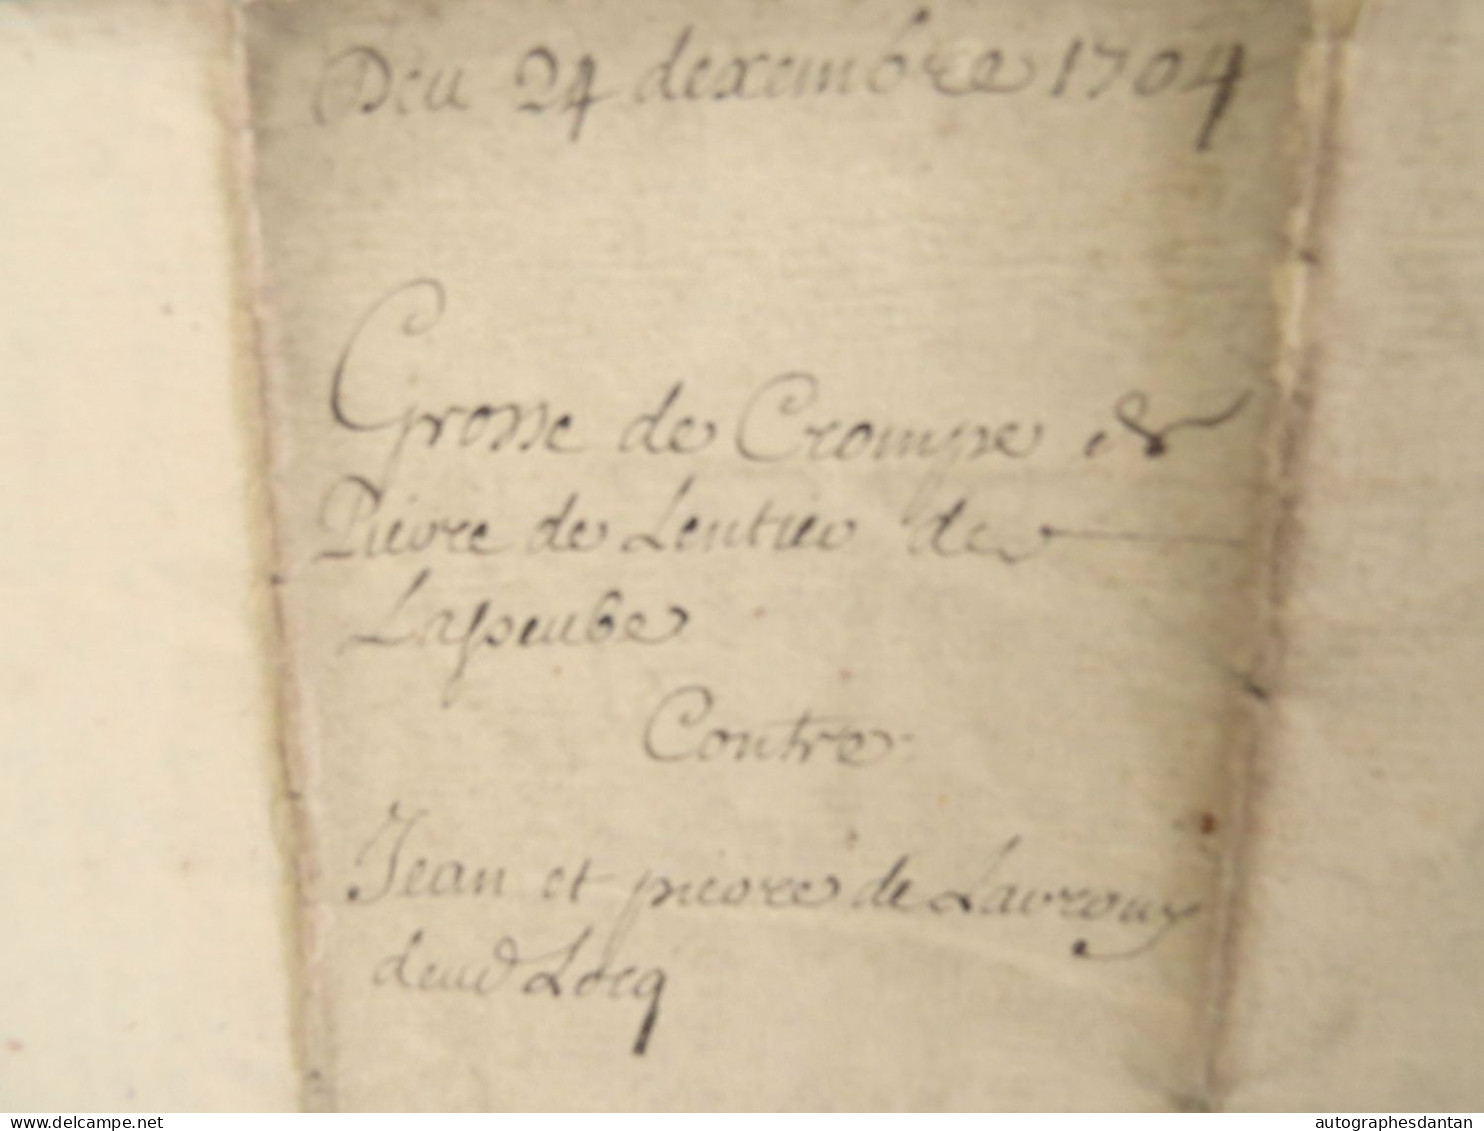 Deu 24 dexembre 1704
Grosse de Crompe de
Pierre de Lentier de
Lasseube
Contre
Jean et pierre de Lavrouy
deud Locq
www.delcampe.net
autographesdantan